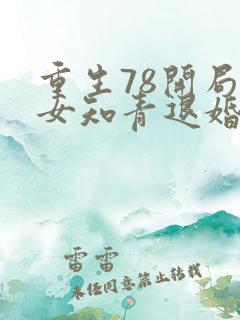 重生78开局
女知青退婚
雷雷
未经同意禁止转载